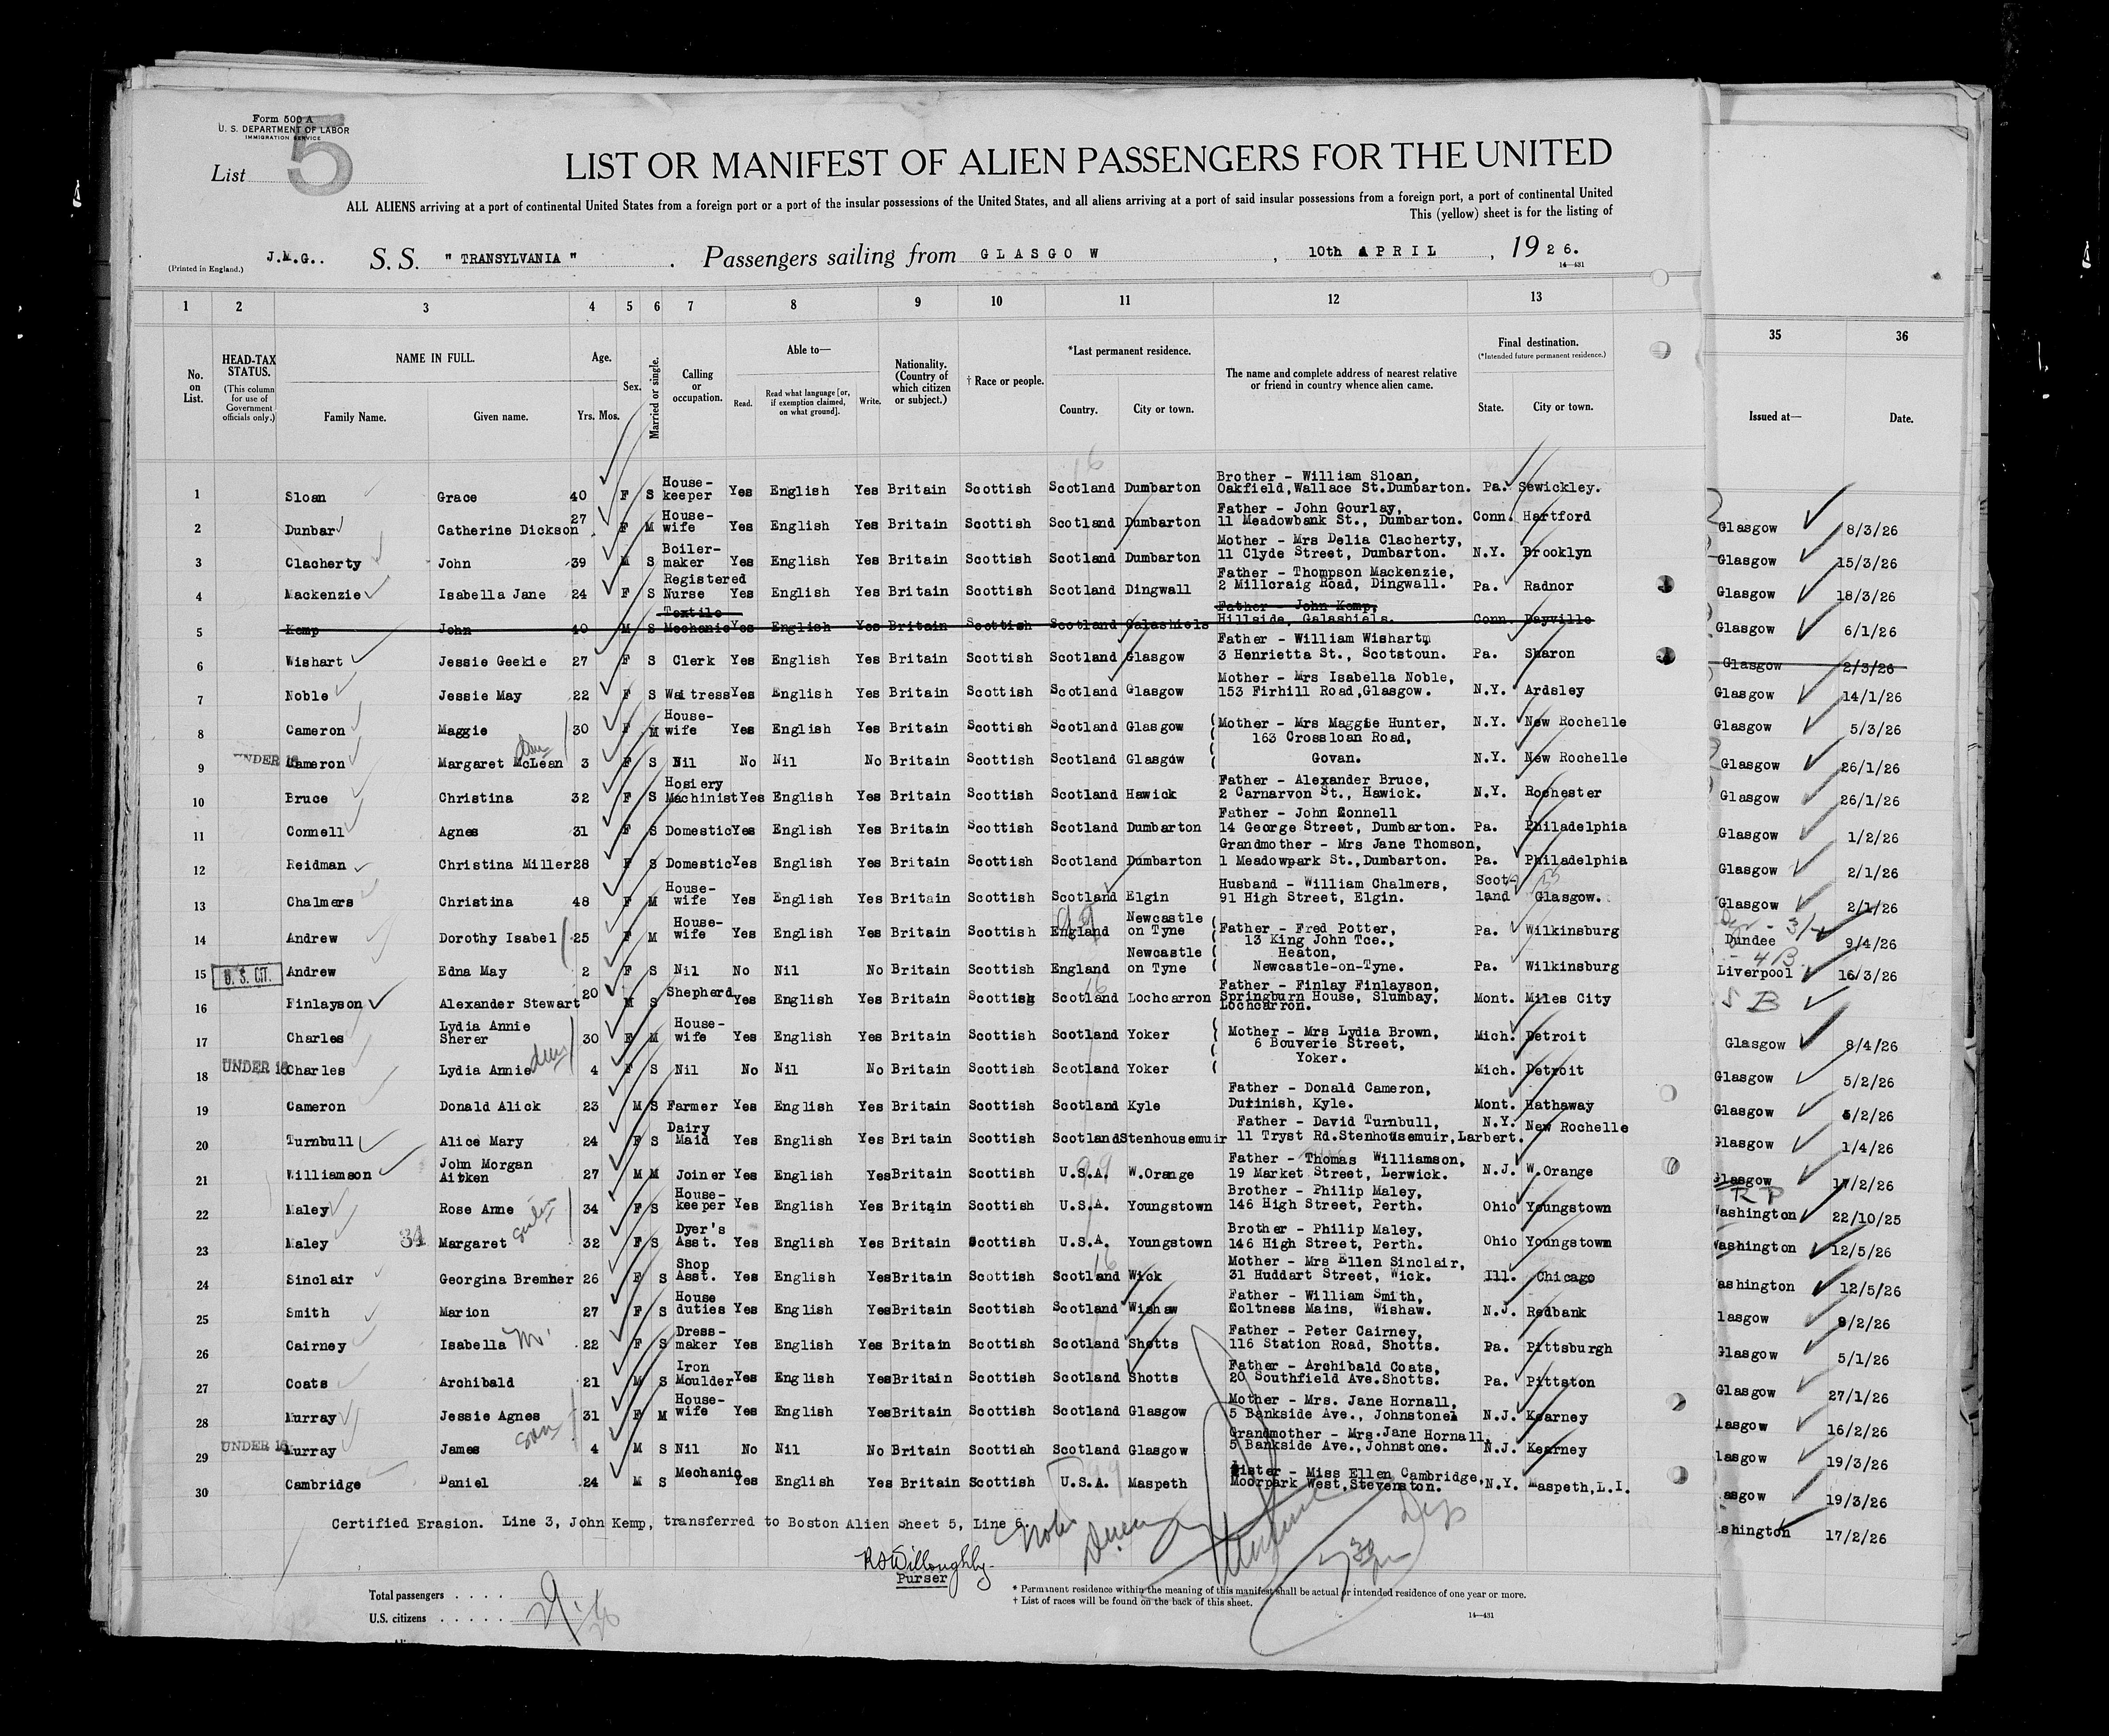 Form 500 A
U. S. DEPARTMENT OF LABOR
IMMIGRATION SERVICE
List 5
LIST OR MANIFEST OF ALIEN PASSENGERS FOR THE UNITED
ALL ALIENS arriving at a port of continental United States from a foreign port or a port of the insular possessions of the United States, and all aliens arriving at a port of said insular possessions from a foreign port, a port of continental United
This (yellow) sheet is for the listing of
(Printed in England.) J.M.G.. S. S. " TRANSYLVANIA " . Passengers sailing from GLASGOW , 10th APRIL , 1926.
14—431
1 2 3 4 5 6 7 8 9 10 11 12 13 35 36
No. on List. HEAD-TAX STATUS. (This column for use of Government officials only.) NAME IN FULL. Family Name. Given name. Age. Yrs. Mos. Sex. Married or single. Calling or occupation. Able to— Read. Read what language [or, if exemption claimed, on what ground]. Write. Nationality. (Country of which citizen or subject.) † Race or people. *Last permanent residence. Country. City or town. The name and complete address of nearest relative or friend in country whence alien came. Final destination. (*Intended future permanent residence.) State. City or town. Issued at— Date.
1 Sloan Grace 40 F S House-keeper Yes English Yes Britain Scottish Scotland Dumbarton Brother - William Sloan, Oakfield,Wallace St.Dumbarton. Pa. Sewickley. Glasgow 8/3/26
2 Dunbar Catherine Dickson 27 F M House-wife Yes English Yes Britain Scottish Scotland Dumbarton Father - John Gourlay, 11 Meadowbank St., Dumbarton. Conn. Hartford Glasgow 15/3/26
3 Clacherty John 39 M S Boiler-maker Yes English Yes Britain Scottish Scotland Dumbarton Mother - Mrs Delia Clacherty, 11 Clyde Street, Dumbarton. N.Y. Brooklyn Glasgow 18/3/26
4 Mackenzie Isabella Jane 24 F S Registered Nurse Yes English Yes Britain Scottish Scotland Dingwall Father - Thompson Mackenzie, 2 Millcraig Road, Dingwall. Pa. Radnor Glasgow 6/1/26
5 Kemp John 40 M S Textile Mechanic Yes English Yes Britain Scottish Scotland Galashiels Father - John Kemp, Hillside, Galashiels. Conn. Dayville Glasgow 2/3/26
6 Wishart Jessie Geekie 27 F S Clerk Yes English Yes Britain Scottish Scotland Glasgow Father - William Wishart, 3 Henrietta St., Scotstoun. Pa. Sharon Glasgow 14/1/26
7 Noble Jessie May 22 F S Waitress Yes English Yes Britain Scottish Scotland Glasgow Mother - Mrs Isabella Noble, 153 Firhill Road,Glasgow. N.Y. Ardsley Glasgow 5/3/26
8 Cameron Maggie 30 F M House-wife Yes English Yes Britain Scottish Scotland Glasgow Mother - Mrs Maggie Hunter, 163 Crossloan Road, N.Y. New Rochelle Glasgow 26/1/26
9 UNDER 16 Cameron Margaret McLean 3 F S Nil No Nil No Britain Scottish Scotland Glasgow Govan. N.Y. New Rochelle Glasgow 26/1/26
10 Bruce Christina 32 F S Hosiery Machinist Yes English Yes Britain Scottish Scotland Hawick Father - Alexander Bruce, 2 Carnarvon St., Hawick. N.Y. Rochester Glasgow 1/2/26
11 Connell Agnes 31 F S Domestic Yes English Yes Britain Scottish Scotland Dumbarton Father - John Connell 14 George Street, Dumbarton. Pa. Philadelphia Glasgow 2/1/26
12 Reidman Christina Miller 28 F S Domestic Yes English Yes Britain Scottish Scotland Dumbarton Grandmother - Mrs Jane Thomson, 1 Meadowpark St.,Dumbarton. Pa. Philadelphia Glasgow 2/1/26
13 Chalmers Christina 48 F M House-wife Yes English Yes Britain Scottish Scotland Elgin Husband - William Chalmers, 91 High Street, Elgin. Scot-land Glasgow. Dundee 9/4/26
14 Andrew Dorothy Isabel 25 F M House-wife Yes English Yes Britain Scottish England Newcastle on Tyne Father - Fred Potter, 13 King John Tce., Heaton, Pa. Wilkinsburg Liverpool 16/3/26
15 U. S. CIT. Andrew Edna May 2 F S Nil No Nil No Britain Scottish England Newcastle on Tyne Newcastle-on-Tyne. Pa. Wilkinsburg
16 Finlayson Alexander Stewart 20 M S Shepherd Yes English Yes Britain Scottish Scotland Lochcarron Father - Finlay Finlayson, Springburn House, Slumbay, Lochcarron. Mont. Miles City Glasgow 8/4/26
17 Charles Lydia Annie Sherer 30 F M House-wife Yes English Yes Britain Scottish Scotland Yoker Mother - Mrs Lydia Brown, 6 Bouverie Street, Yoker. Mich. Detroit Glasgow 5/2/26
18 UNDER 16 Charles Lydia Annie 4 F S Nil No Nil No Britain Scottish Scotland Yoker Mich. Detroit Glasgow 5/2/26
19 Cameron Donald Alick 23 M S Farmer Yes English Yes Britain Scottish Scotland Kyle Father - Donald Cameron, Durinish, Kyle. Mont. Hathaway Glasgow 1/4/26
20 Turnbull Alice Mary 24 F S Dairy Maid Yes English Yes Britain Scottish Scotland Stenhousemuir Father - David Turnbull, 11 Tryst Rd.Stenhousemuir,Larbert. N.Y. New Rochelle Glasgow 17/2/26
21 Williamson John Morgan Aitken 27 M M Joiner Yes English Yes Britain Scottish U.S.A. W.Orange Father - Thomas Williamson, 19 Market Street, Lerwick. N.J. W.Orange Washington 22/10/25
22 Maley Rose Anne 34 F S House-keeper Yes English Yes Britain Scottish U.S.A. Youngstown Brother - Philip Maley, 146 High Street, Perth. Ohio Youngstown Washington 12/5/26
23 Maley 34 Margaret 32 F S Dyer's Asst. Yes English Yes Britain Scottish U.S.A. Youngstown Brother - Philip Maley, 146 High Street, Perth. Ohio Youngstown ashington 12/5/26
24 Sinclair Georgina Bremner 26 F S Shop Asst. Yes English Yes Britain Scottish Scotland Wick Mother - Mrs Ellen Sinclair, 31 Huddart Street, Wick. Ill. Chicago lasgow 9/2/26
25 Smith Marion 27 F S House duties Yes English Yes Britain Scottish Scotland Wishaw Father - William Smith, Coltness Mains, Wishaw. N.J. Redbank Glasgow 5/1/26
26 Cairney Isabella 22 F S Dress-maker Yes English Yes Britain Scottish Scotland Shotts Father - Peter Cairney, 116 Station Road, Shotts. Pa. Pittsburgh Glasgow 27/1/26
27 Coats Archibald 21 M S Iron Moulder Yes English Yes Britain Scottish Scotland Shotts Father - Archibald Coats, 20 Southfield Ave.Shotts. Pa. Pittston lasgow 16/2/26
28 Murray Jessie Agnes 31 F M House-wife Yes English Yes Britain Scottish Scotland Glasgow Mother - Mrs. Jane Hornall, 5 Bankside Ave., Johnstone. N.J. Kearney lasgow 19/3/26
29 UNDER 16 Murray James 4 M S Nil No Nil No Britain Scottish Scotland Glasgow Grandmother - Mrs. Jane Hornall, 5 Bankside Ave.,Johnstone. N.J. Kearney asgow 19/3/26
30 Cambridge Daniel 24 M S Mechanic Yes English Yes Britain Scottish U.S.A. Maspeth Sister - Miss Ellen Cambridge, Moorpark West,Stevenston. N.Y. Maspeth,L.I. shington 17/2/26
Certified Erasion. Line 3, John Kemp, transferred to Boston Alien Sheet 5, Line 6.
R S Willoughby
Purser
Total passengers . . . .
U.S. citizens . . . . .
* Permanent residence within the meaning of this manifest shall be actual or intended residence of one year or more.
† List of races will be found on the back of this sheet.
14—431